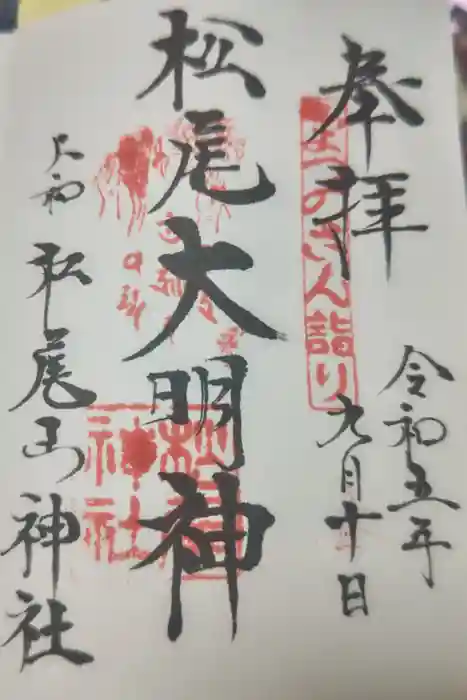 奉拝
まつのさん詣り
令和五年
九月十日
松尾大明神
大和
松尾山神社